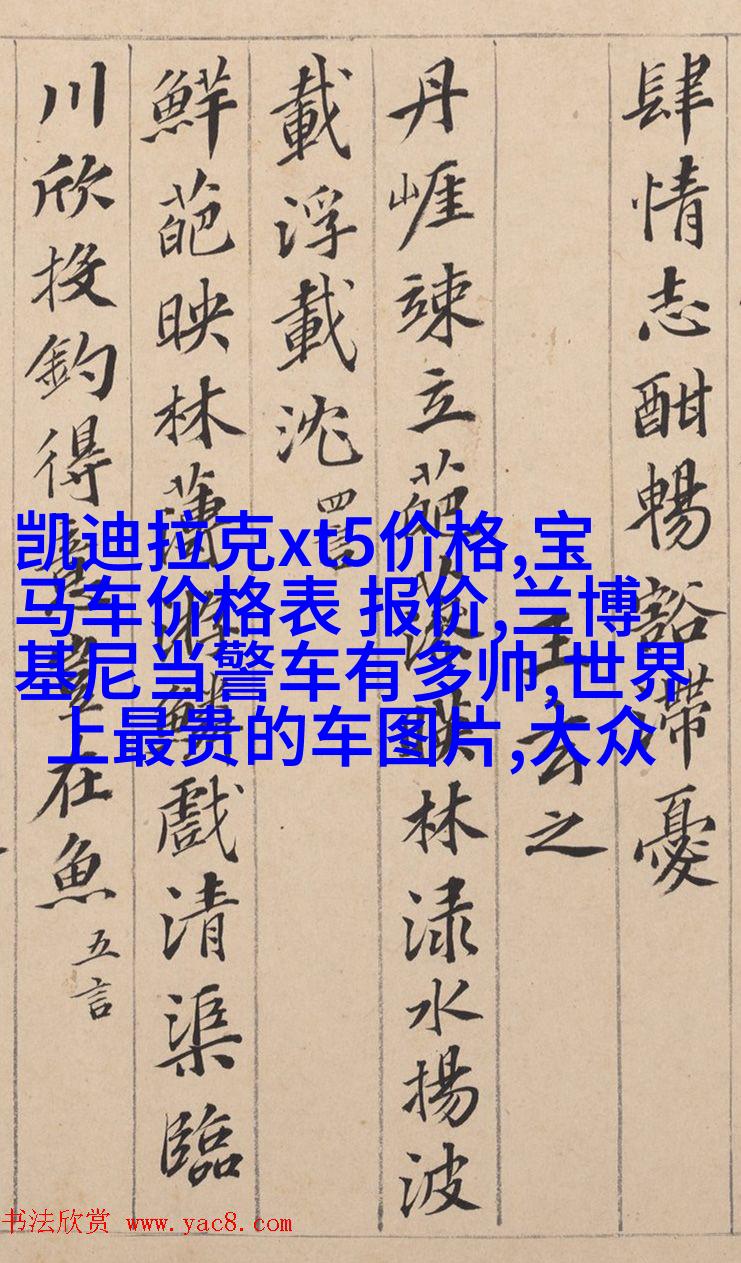 肆情志酣暢豁滯憂
王玄之
丹崕竦立葩藻映林淥水揚波
載浮載沈 四言
鮮葩映林薄游鱗戲清渠臨
川欣投釣得意豈在魚 五言
凯迪拉克xt5价格,宝
马车价格表 报价,兰博
基尼当警车有多帅,世界
上最贵的车图片,大众
书法欣赏 www.yac8.com